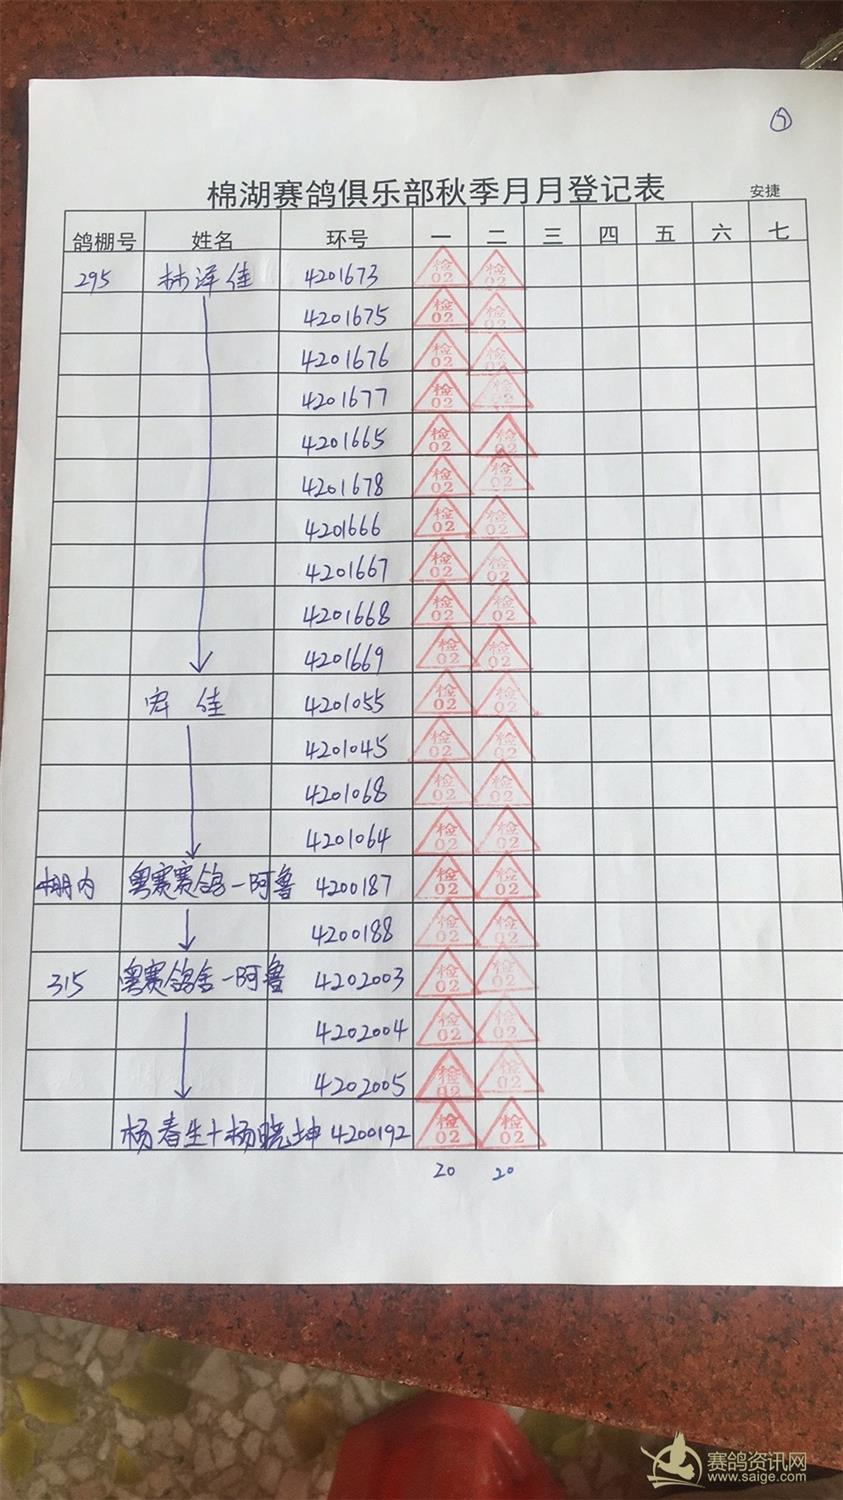 5
棉湖赛鸽俱乐部秋季月月登记表 安捷
鸽棚号 姓名 环号 一 二 三 四 五 六 七
295 林泽佳 4201673 检02 检02
4201675 检02 检02
4201676 检02 检02
4201677 检02 检02
4201665 检02 检02
4201678 检02 检02
4201666 检02 检02
4201667 检02 检02
4201668 检02 检02
4201669 检02 检02
宏佳 4201055 检02 检02
4201045 检02 检02
4201068 检02 检02
4201064 检02 检02
棚内 粤赛赛鸽-阿鲁 4200187 检02 检02
4200188 检02 检02
315 粤赛鸽舍-阿鲁 4202003 检02 检02
4202004 检02 检02
4202005 检02 检02
杨春生+杨晓坤 4200192 检02 检02
20 20
赛鸽资讯网
www.saige.com